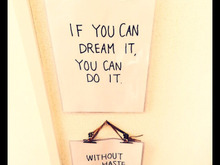 IF YOU CAN
DREAM IT,
YOU CAN
DO IT.
WITHOUT
WASTE